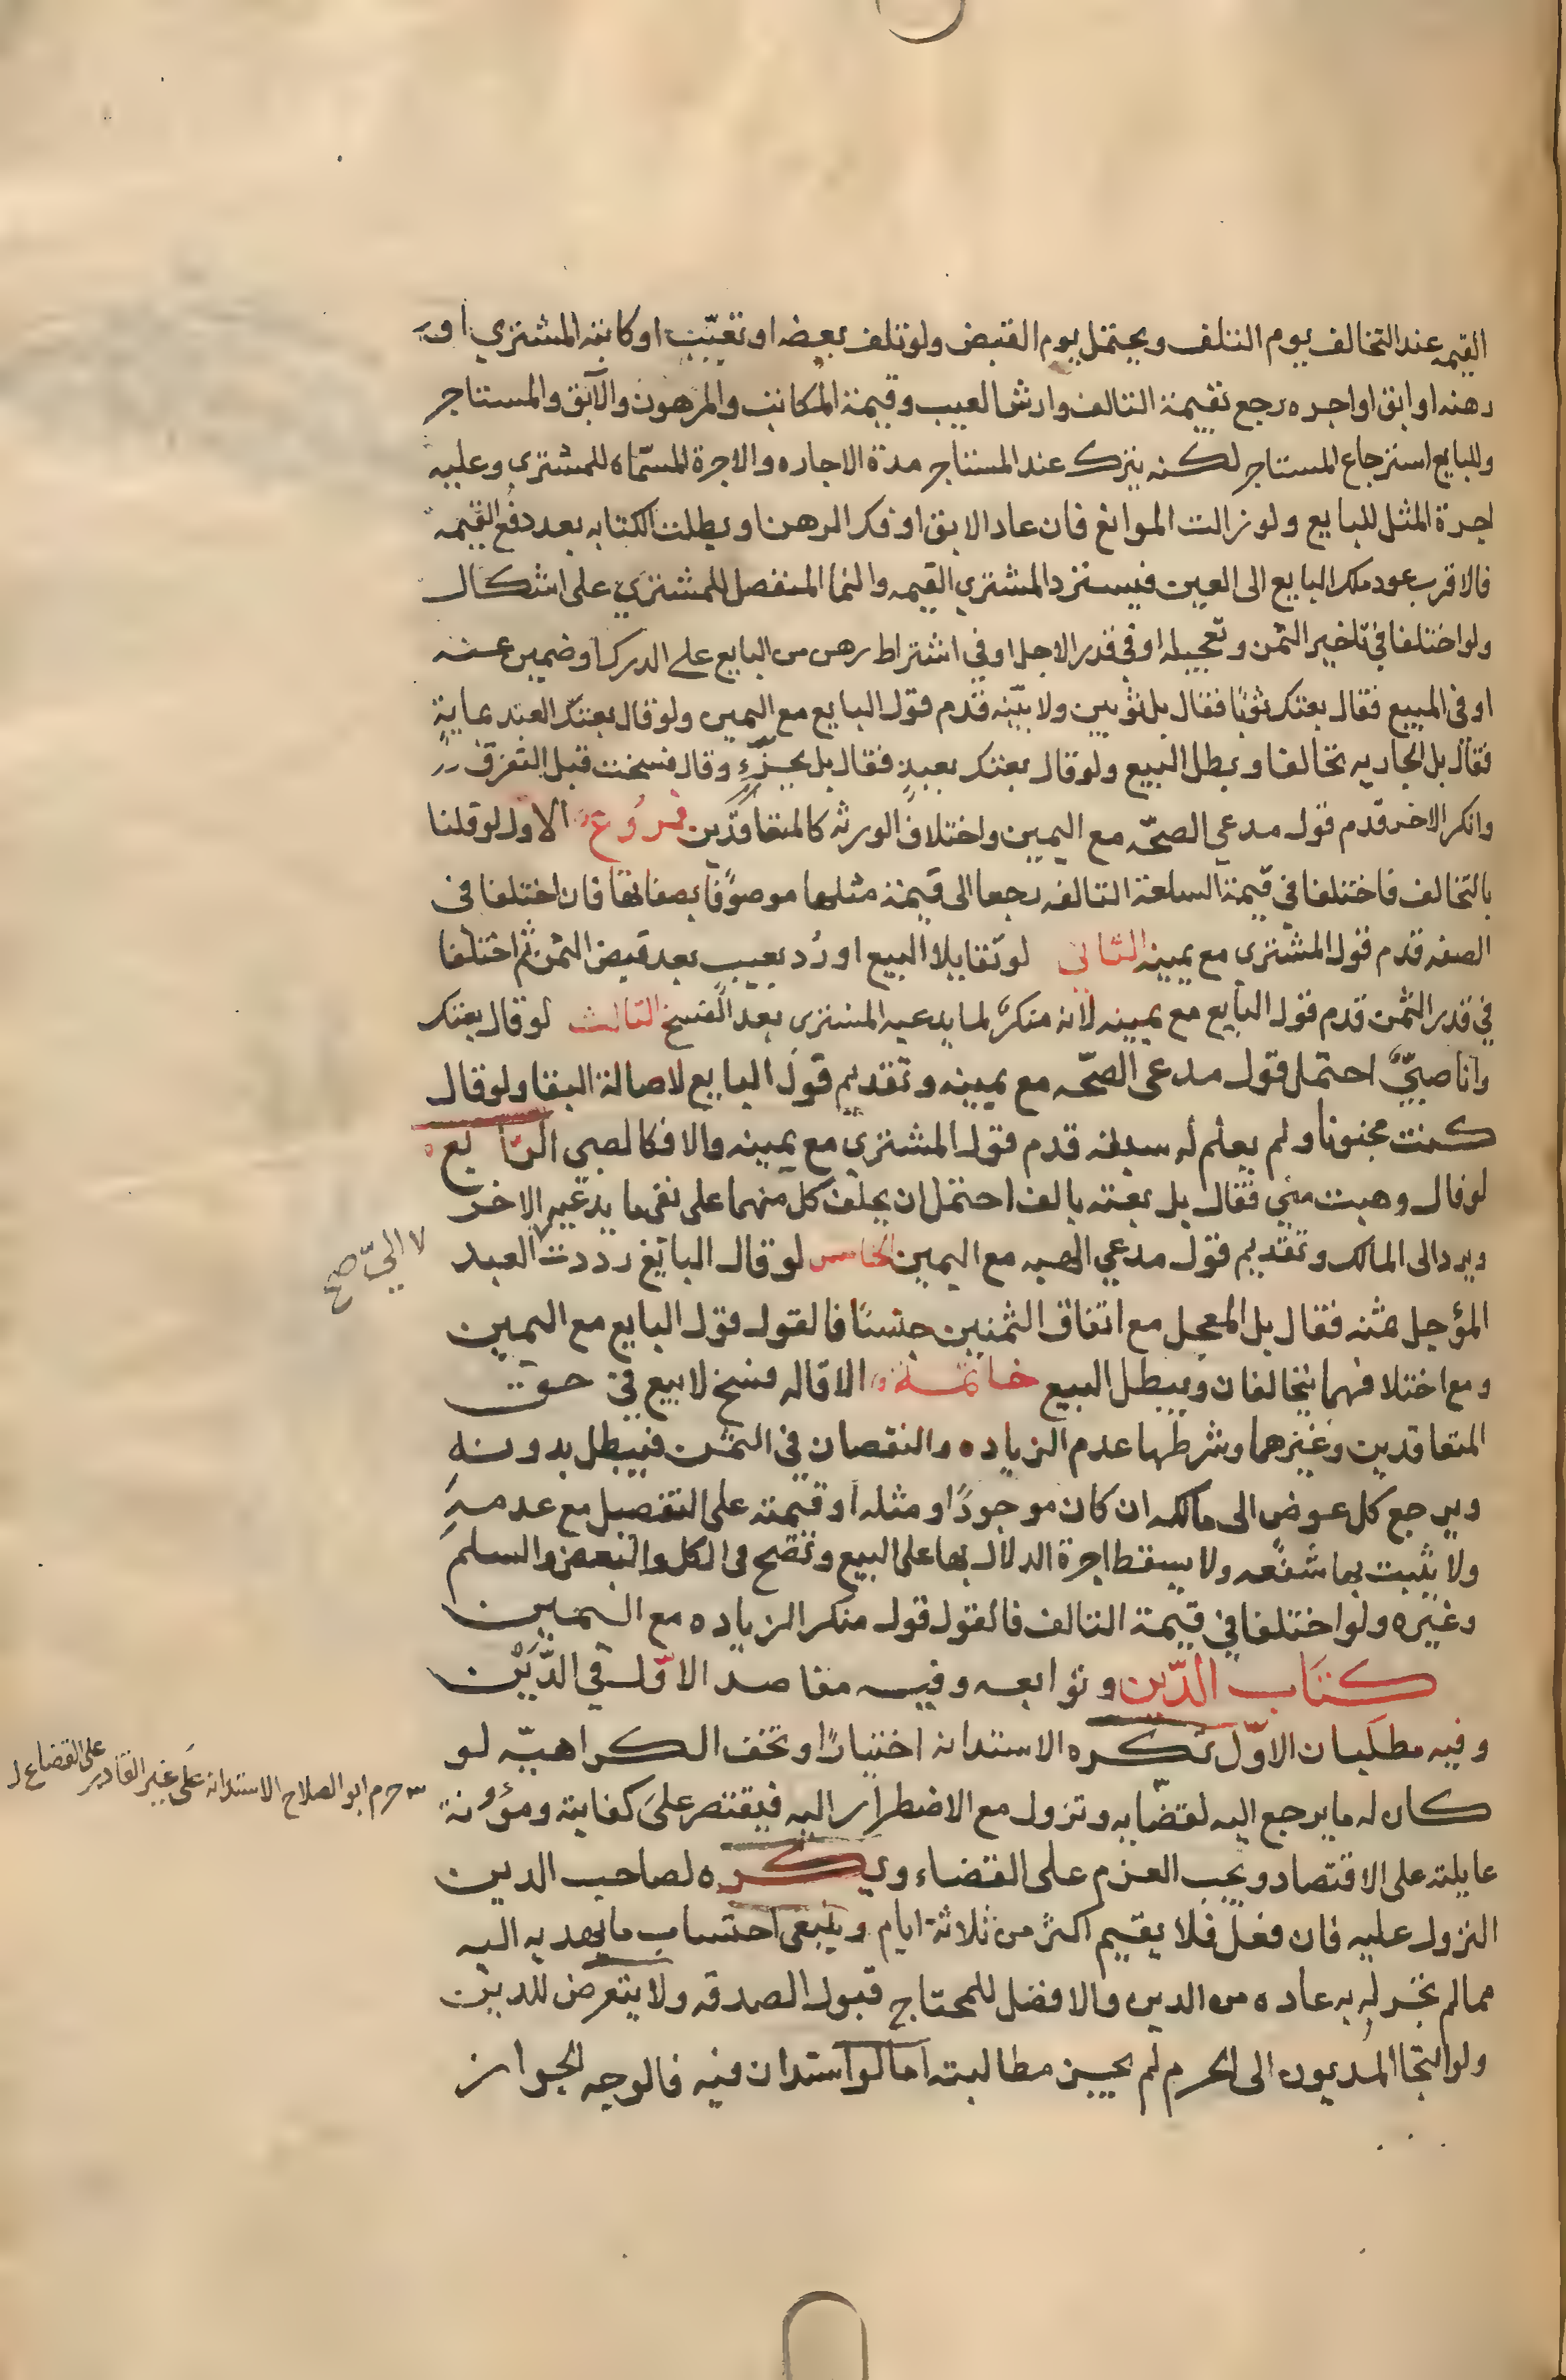 القيمه عند التخالف يوم التلف ويحتمل يوم القبض ولو تلف بعضه او تعيّب او كاتبه المشتري او
رهنه او ابق او اجره رجع بقيمة التالف وارش العيب وقيمة المكاتب والمرهون والآبق والمستاجر
وللبايع استرجاع المستاجر لكنه يترك عند المستاجر مدة الاجاره والاجرة المسمّاه للمشتري وعليه
اجرة المثل للبايع ولو زالت الموانع فان عاد الابق او فك الرهن او بطلت الكتابه بعد دفع القيمه
فالاقرب عود ملك البايع الى العين فيسترد المشتري القيمه والنما المنفصل للمشتري على اشكال
ولو اختلفا في تاخير الثمن وتعجيله او في قدر الاجل او في اشتراط رهن من البايع على الدرك او ضمين عنه
او في المبيع فقال بعتك ثوبًا فقال بل ثوبين ولا بيّنه قدم قول البايع مع اليمين ولو قال بعتك العبد بمايةٍ
فقال بل الجاريه تخالفا وبطل البيع ولو قال بعتك بعبدٍ فقال بل بحرٍّ او قال فسخت قبل التفرق
وانكر الاخر قدم قول مدعي الصحّه مع اليمين واختلاف الورثه كالمتعاقدين فروع الاول لو قلنا
بالتخالف فاختلفا في قيمة السلعة التالفه رجعا الى قيمة مثلها موصوفًا بصفاتها فان اختلفا في
الصفه قدم قول المشتري مع يمينه الثاني لو تقايلا البيع او رُد بعيبٍ بعد قبض الثمن ثم اختلفا
في قدر الثمن قدم قول البايع مع يمينه لانه منكرٌ لما يدعيه المشتري بعد الفسخ الثالث لو قال بعتك
وانا صبيٌّ احتمل قول مدعي الصحّه مع يمينه وتقديم قول البايع لاصالة البقا ولو قال
كنت مجنونا ولم يعلم له سبقه قدم قول المشتري مع يمينه والا فكالصبي الرّابع
لو قال وهبت مني فقال بل بعته بالف احتمل ان يحلف كل منهما على نفي ما يدعيه الاخر
ويرد الى المالك وتقديم قول مدعي الهبه مع اليمين الخامس لو قال البايع رددت العبد
الىّ صح
المؤجل ثمنه فقال بل المعجل مع اتفاق الثمنين جنسًا فالقول قول البايع مع اليمين
ومع اختلافهما يتخالفان ويبطل البيع خاتمة الاقاله فسخ لا بيع في حق
المتعاقدين وغيرهما وشرطها عدم الزياده والنقصان في الثمن فيبطل بدونه
ويرجع كل عوض الى مالكه ان كان موجودًا او مثله او قيمته على التفصيل مع عدمه
ولا يثبت بها شفعه ولا يسقط اجرة الدلال بها على البيع وتصح في الكل والبعض والسلم
وغيره ولو اختلفا في قيمة التالف فالقول قول منكر الزياده مع اليمين
كتاب الدّين وتوابعه وفيه مقاصد الاوّل في الدَّيْن
وفيه مطلبان الاوّل تكره الاستدانه اختيارًا وتخف الكراهيّه لو
كان له ما يرجع اليه لقضايه وتزول مع الاضطرار اليه فيقتصر على كفايته ومؤونة
حرم ابو الصلاح الاستدانه على غير القادر على القضاء
عايلته على الاقتصاد ويجب العزم على القضاء ويكره لصاحب الدين
النزول عليه فان فعل فلا يقيم اكثر من ثلاثة ايام وينبغي احتساب ما يهديه اليه
مما لم تجر له به عاده من الدين والافضل للمحتاج قبول الصدقه ولا يتعرض للدين
ولو التجا المديون الى الحرم لم يجز مطالبته اما لو استدان فيه فالوجه الجواز